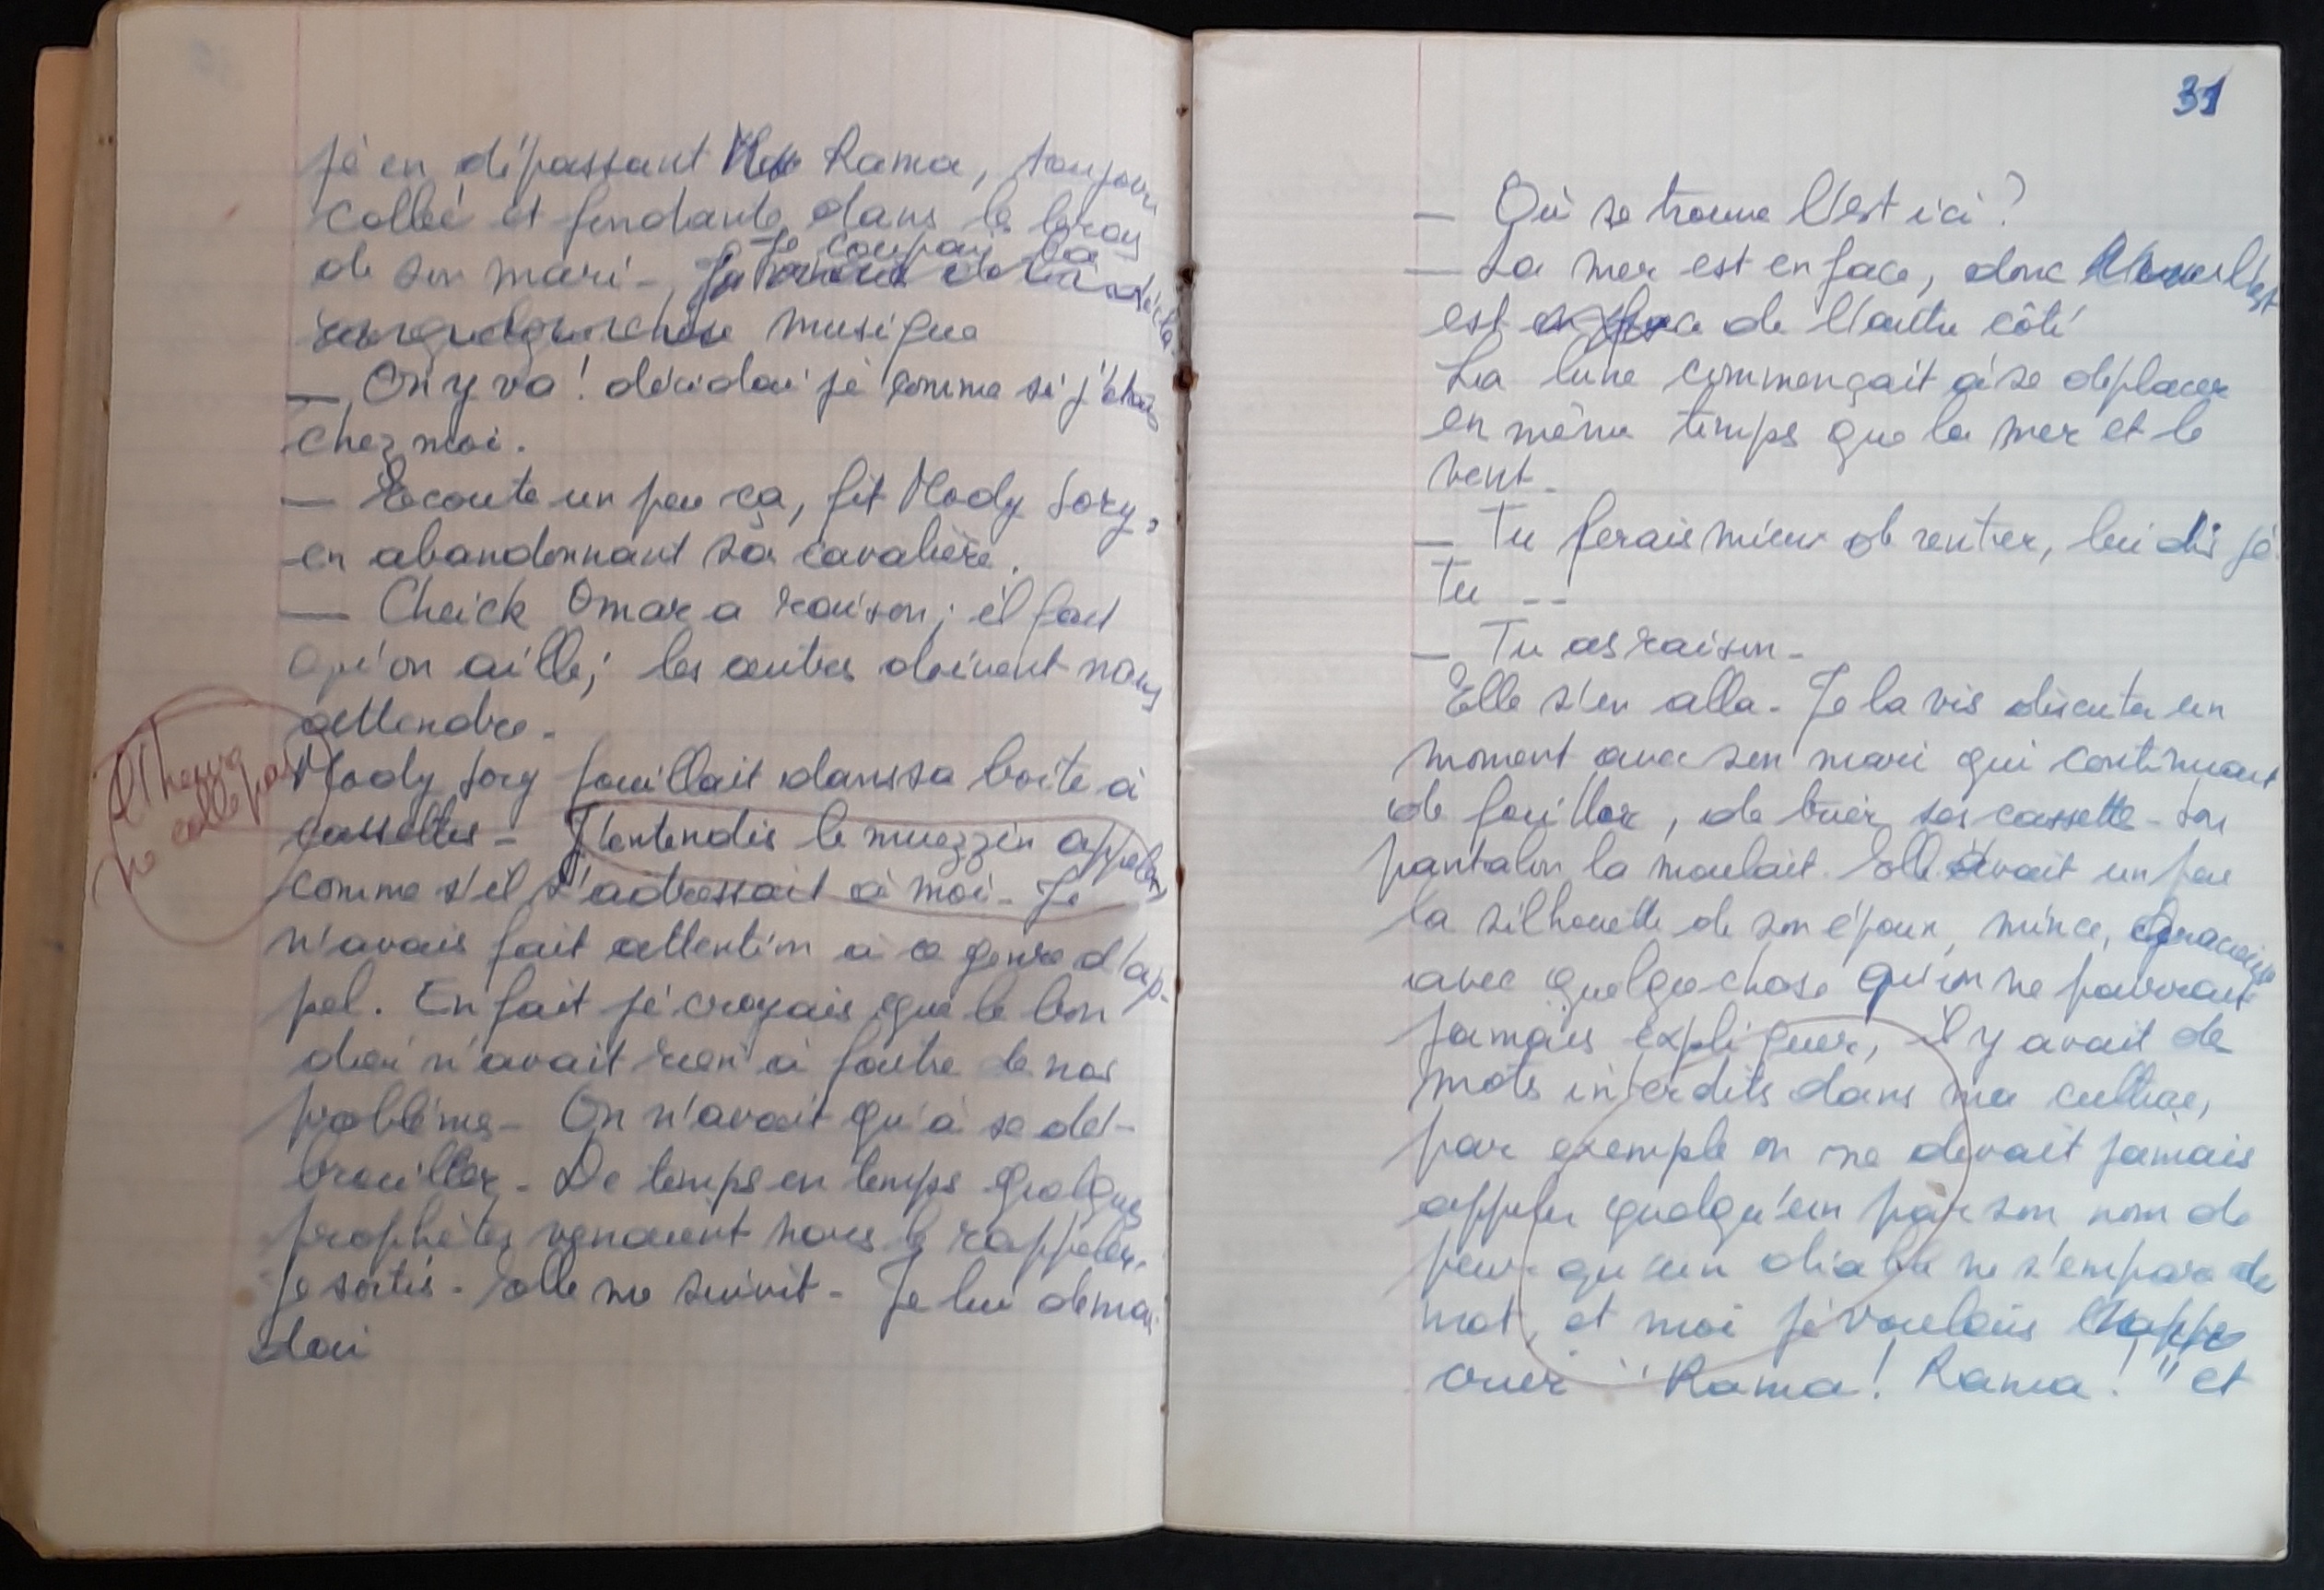 je en dépassant Rama, toujours
collée et fondante dans les bras
de son mari - Je coupai la
musique
— On y va ! décidai je comme si j'étais
chez moi.
— Ecoute un peu ça, fit Mody Sory,
en abandonnant sa cavalière.
— Cheick Omar a raison ; il faut
qu'on aille ; les autres doivent nous
attendre -
Mody Sory fouillait dans sa boite à
cassettes - J'entendis le muezzin appeler
comme s'il s'adressait à moi - Je
n'avais fait attention à ce genre d'ap-
pel. En fait je croyais que le bon
dieu n'avait rien à foutre de nos
problèmes - On n'avait qu'à se dé-
brouiller - De temps en temps quelques
prophètes venaient nous le rappeler.
Je sortis - Elle me suivit - Je lui deman
dai
ne colle pas
31
— Où se trouve l'est ici ?
— La mer est en face, donc l'est
est de l'autre côté
La lune commençait à se déplacer
en même temps que la mer et le
vent -
— Tu ferais mieux de rentrer, lui dis je
Tu --
— Tu as raison -
Elle s'en alla - Je la vis discuter un
moment avec son mari qui continuait
de fouiller, de trier ses cassette - Son
pantalon la moulait. Elle avait un peu
la silhouette de son époux, mince, gracieuse
avec quelque chose qu'on ne pourrait
jamais expliquer, il y avait de
mots interdits dans ma culture,
par exemple on ne devait jamais
appeler quelqu'un par son nom de
peur qu'un diable ne s'empare de
mot, et moi je voulais
crier "Rama ! Rama ! " et